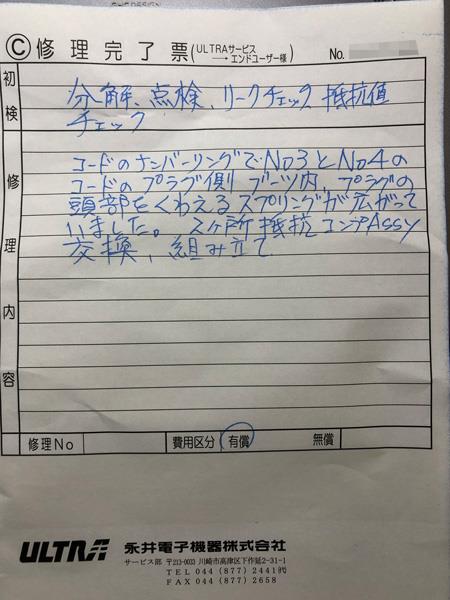 Ⓒ修理完了票(ULTRAサービス→エンドユーザー様) No.
初検
分解、点検、リークチェック 抵抗値
チェック
修理内容
コードのナンバーリングでNo3とNo4の
コードのプラグ側 ブーツ内、プラグの
頭部をくわえるスプリングが広がって
いました。 2ヶ所 抵抗コンデAssy
交換、組み立て
修理No 費用区分 有償 無償
ULTRA 永井電子機器株式会社
サービス部 〒213-0033 川崎市高津区下作延2-31-1
TEL 044 (877) 2441㈹
FAX 044 (877) 2658